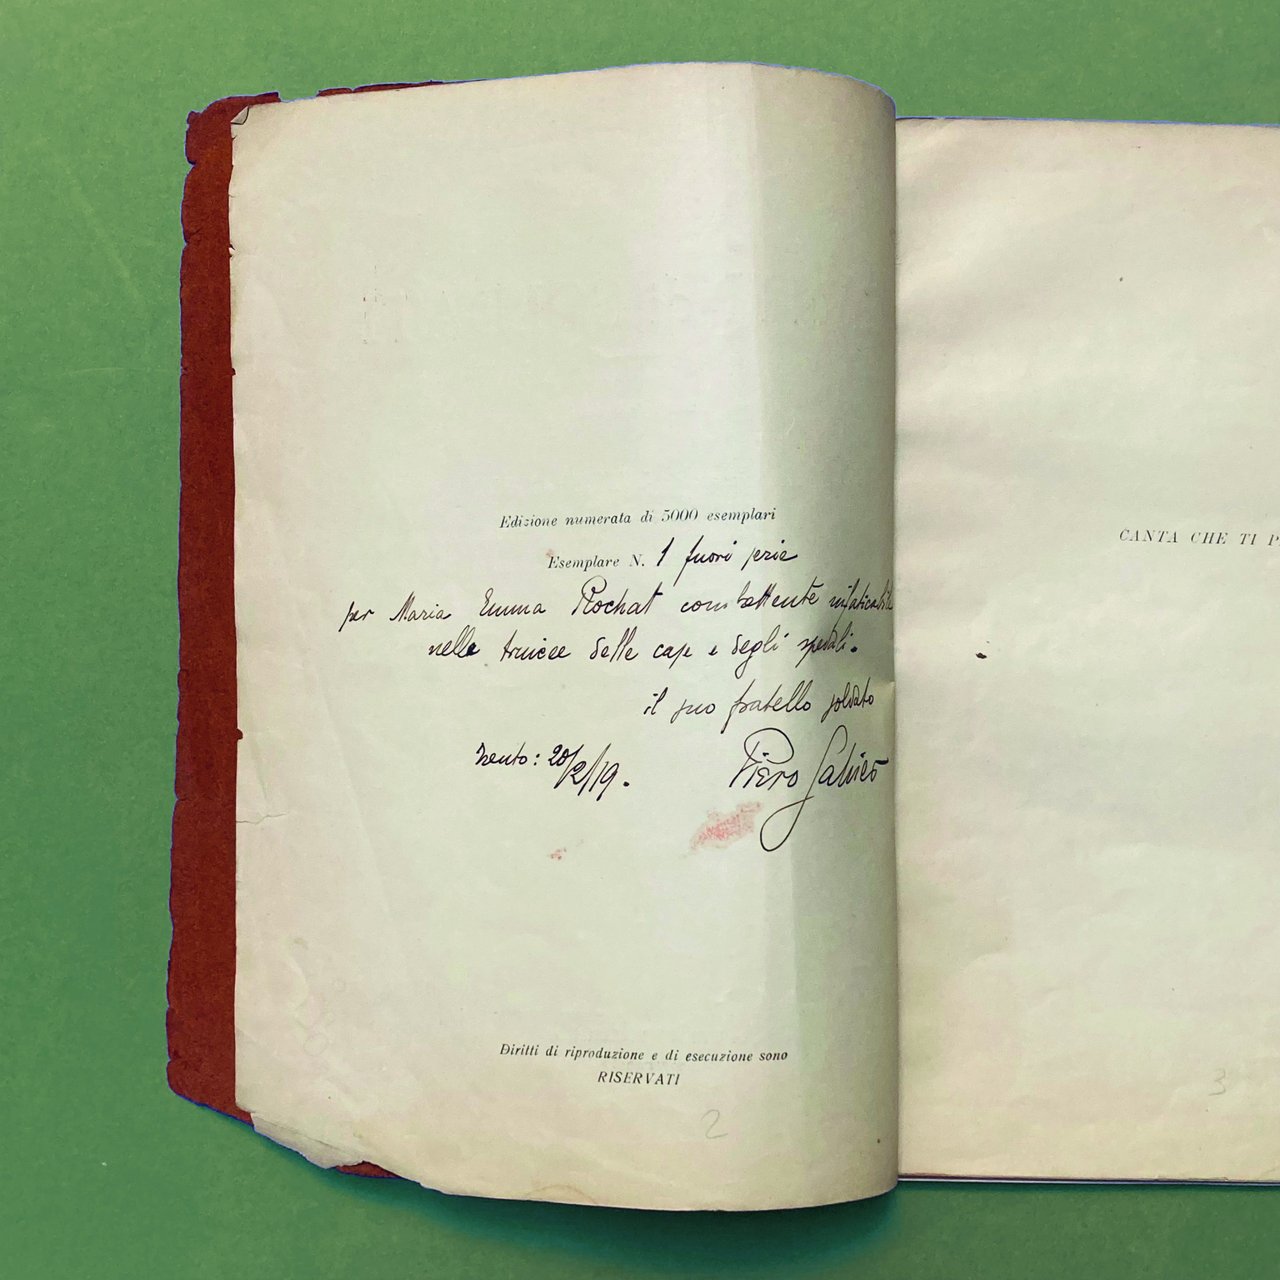 Edizione numerata di 5000 esemplari
Esemplare N. 1 fuori serie
per Maria Emma Rochat combattente infaticabile
nelle trincee delle case e degli spedali.
il suo fratello soldato
Trento: 20/2/19.
Piero Jahier
Diritti di riproduzione e di esecuzione sono
RISERVATI
2
CANTA CHE TI P
3